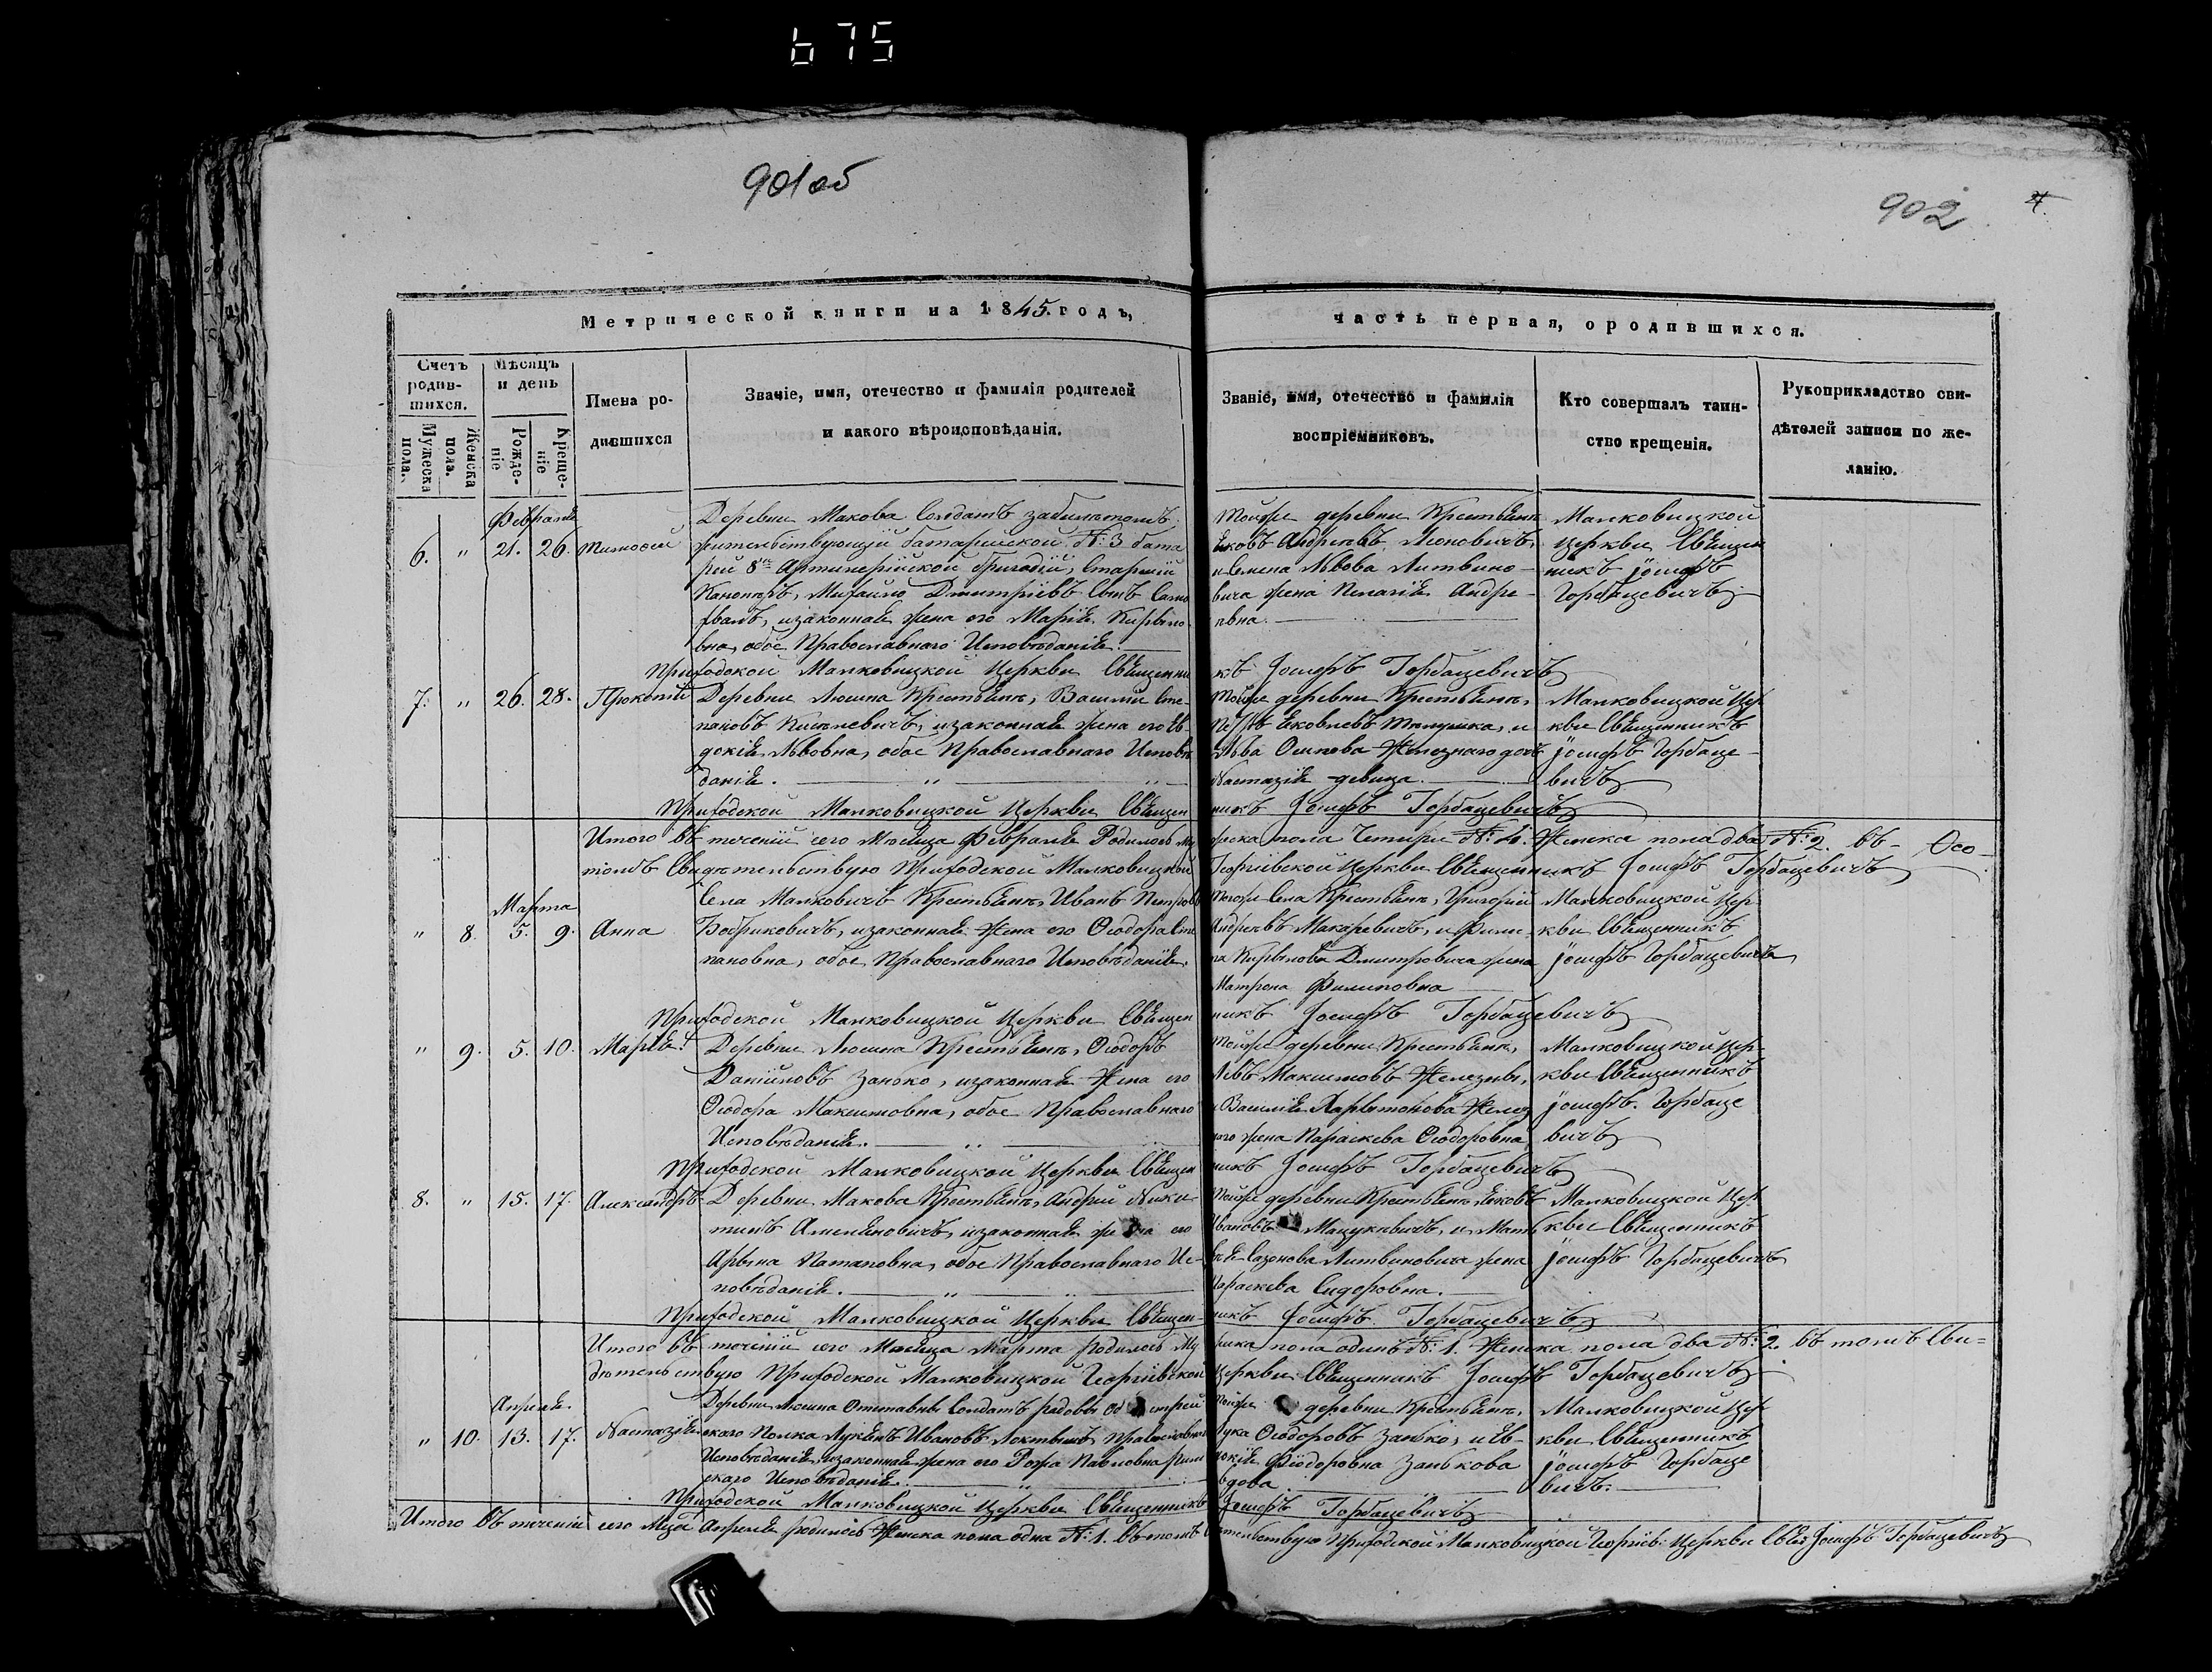 675
901об
902
Метрической книги на 1845. годъ,
часть первая, ородившихся.
Счетъ родив-шихся.
Мужеска пола.
Женска пола.
Мѣсяцъ и день
Рожде-ніе
Креще-ніе
Имена ро-
дившихся
Званіе, имя, отечество и фамилія родителей
и какого вѣроисповѣданія.
Званіе, имя, отечество и фамилія
воспріемниковъ.
Кто совершалъ таин-
ство крещенія.
Рукоприкладство сви-
дѣтелей записи по же-
ланію.
Февраля
6. " 21. 26. Тимофей
Деревни Макова Солдатъ
жительствующій Батарейской №: 3 бата
реи 8й Артилерійской бригады, Старшій
Канониръ, Михайло Дмитріевъ Сынъ
изаконная жена его Марія
вна, обое Православнаго Исповѣданія.
Тойже деревни Крестьянъ
Яковъ Андреевъ Леоновичъ,
и Семена Львова Литвино-
вича жена Пелагія Андре-
евна.
Малковицкой
Церкви Священ
никъ Іосифъ
Горбацевичъ
Приходской Малковицкой Церкви Священни
къ Іосифъ Горбацевичъ
7. " 26. 28. Прокопій
Деревни Люшна Крестьянъ, Василій Сте-
пановъ изаконная жена его Ев-
докія Львовна, обое Православнаго Исповѣ
данія.
Тойже деревни Крестьянъ,
Яковлевъ и
Льва Осипова Железнаго дочь
Настазія девица.
Малковицкой Цер
кви Священникъ
Іосифъ Горбаце-
вичъ
Приходской Малковицкой Церкви Священ
никъ Іосифъ Горбацевичъ
Итого въ теченіи сего Месяца Февраля Родилось Му
жеска пола Четыре №: 4. Женска пола два №: 2. въ- Осо-
томъ Свидѣтельствую Приходской Малковицкой
Георгіевской Церкви Священникъ Іосифъ Горбацевичъ
Марта
" 8. 5. 9. Анна
Села Малковичъ Крестьянъ, Иванъ Петровъ
Бобриковичъ, изаконная Жена его Ѳеодора Сте
пановна, обое Православнаго Исповѣданія.
Тогоже Села Крестьянъ, Григорій
Андреевъ Макаревичъ, и Фили-
па Кирылова Дмитровича жена
Матрена Филиповна
Малковицкой Цер
кви Священникъ
Іосифъ Горбацевичъ
Приходской Малковицкой Церкви Священ
никъ Іосифъ Горбацевичъ
" 9. 5. 10. Марія.
Деревни Люшна Крестьянъ, Ѳеодоръ
Даніиловъ Занько, изаконная Жена его
Ѳеодора Максимовна, обое Православнаго
Исповѣданія.
Тойже деревни Крестьянъ,
Левъ Максимовъ Железны,
и Василія Харытонова Желез
ного жена Параскева Ѳеодоровна
Малковицкой Цер-
кви Священникъ
Іосифъ. Горбаце
вичъ
Приходской Малковицкой Церкви Священ
никъ Іосифъ Горбацевичъ
8. " 15. 17. Александръ
Деревни Макова Крестьянъ, Андрей Ники-
тинъ изаконная жена его
Арына Патаповна, обое Православнаго Ис-
повѣданія.
Тойже деревни Крестьянъ, Яковъ
Ивановъ и Мат
вѣя Сазонова Литвиновича жена
Параскева Сидоровна.
Малковицкой Цер
кви Священникъ
Іосифъ Горбацевичъ
Приходской Малковицкой Церкви Священ-
никъ Іосифъ Горбацевичъ
Итого въ теченіи сего Месяца Марта родилось Му
жеска пола одинъ №: 1. Женска пола два №: 2. въ томъ Сви=
дѣтельствую Приходской Малковицкой Георгіевской
Церкви Священникъ Іосифъ Горбацевичъ
Апреля.
" 10. 13. 17. Настазія
Деревни Люшна Отставны Солдатъ рядовы
скаго Полка Лукьянъ Ивановъ Православнаго
Исповѣданія, изаконная жена его Рожа Павловна Рим
скаго Исповѣданія.
Тойже деревни Крестьянъ,
Лука Ѳеодоровъ Занько, и Ев-
докія Фіодоровна Занькова
вдова.
Малковицкой Цер
кви Священникъ
Іосифъ Горбаце
вичъ.
Приходской Малковицкой Церкви Священникъ
Іосифъ Горбацевичъ
Итого въ теченіи сего Мца Апреля родилось Женска пола одна №: 1. въ томъ
Приходской Малковицкой Георгіев: Церкви Свящ Іосифъ Горбацевичъ